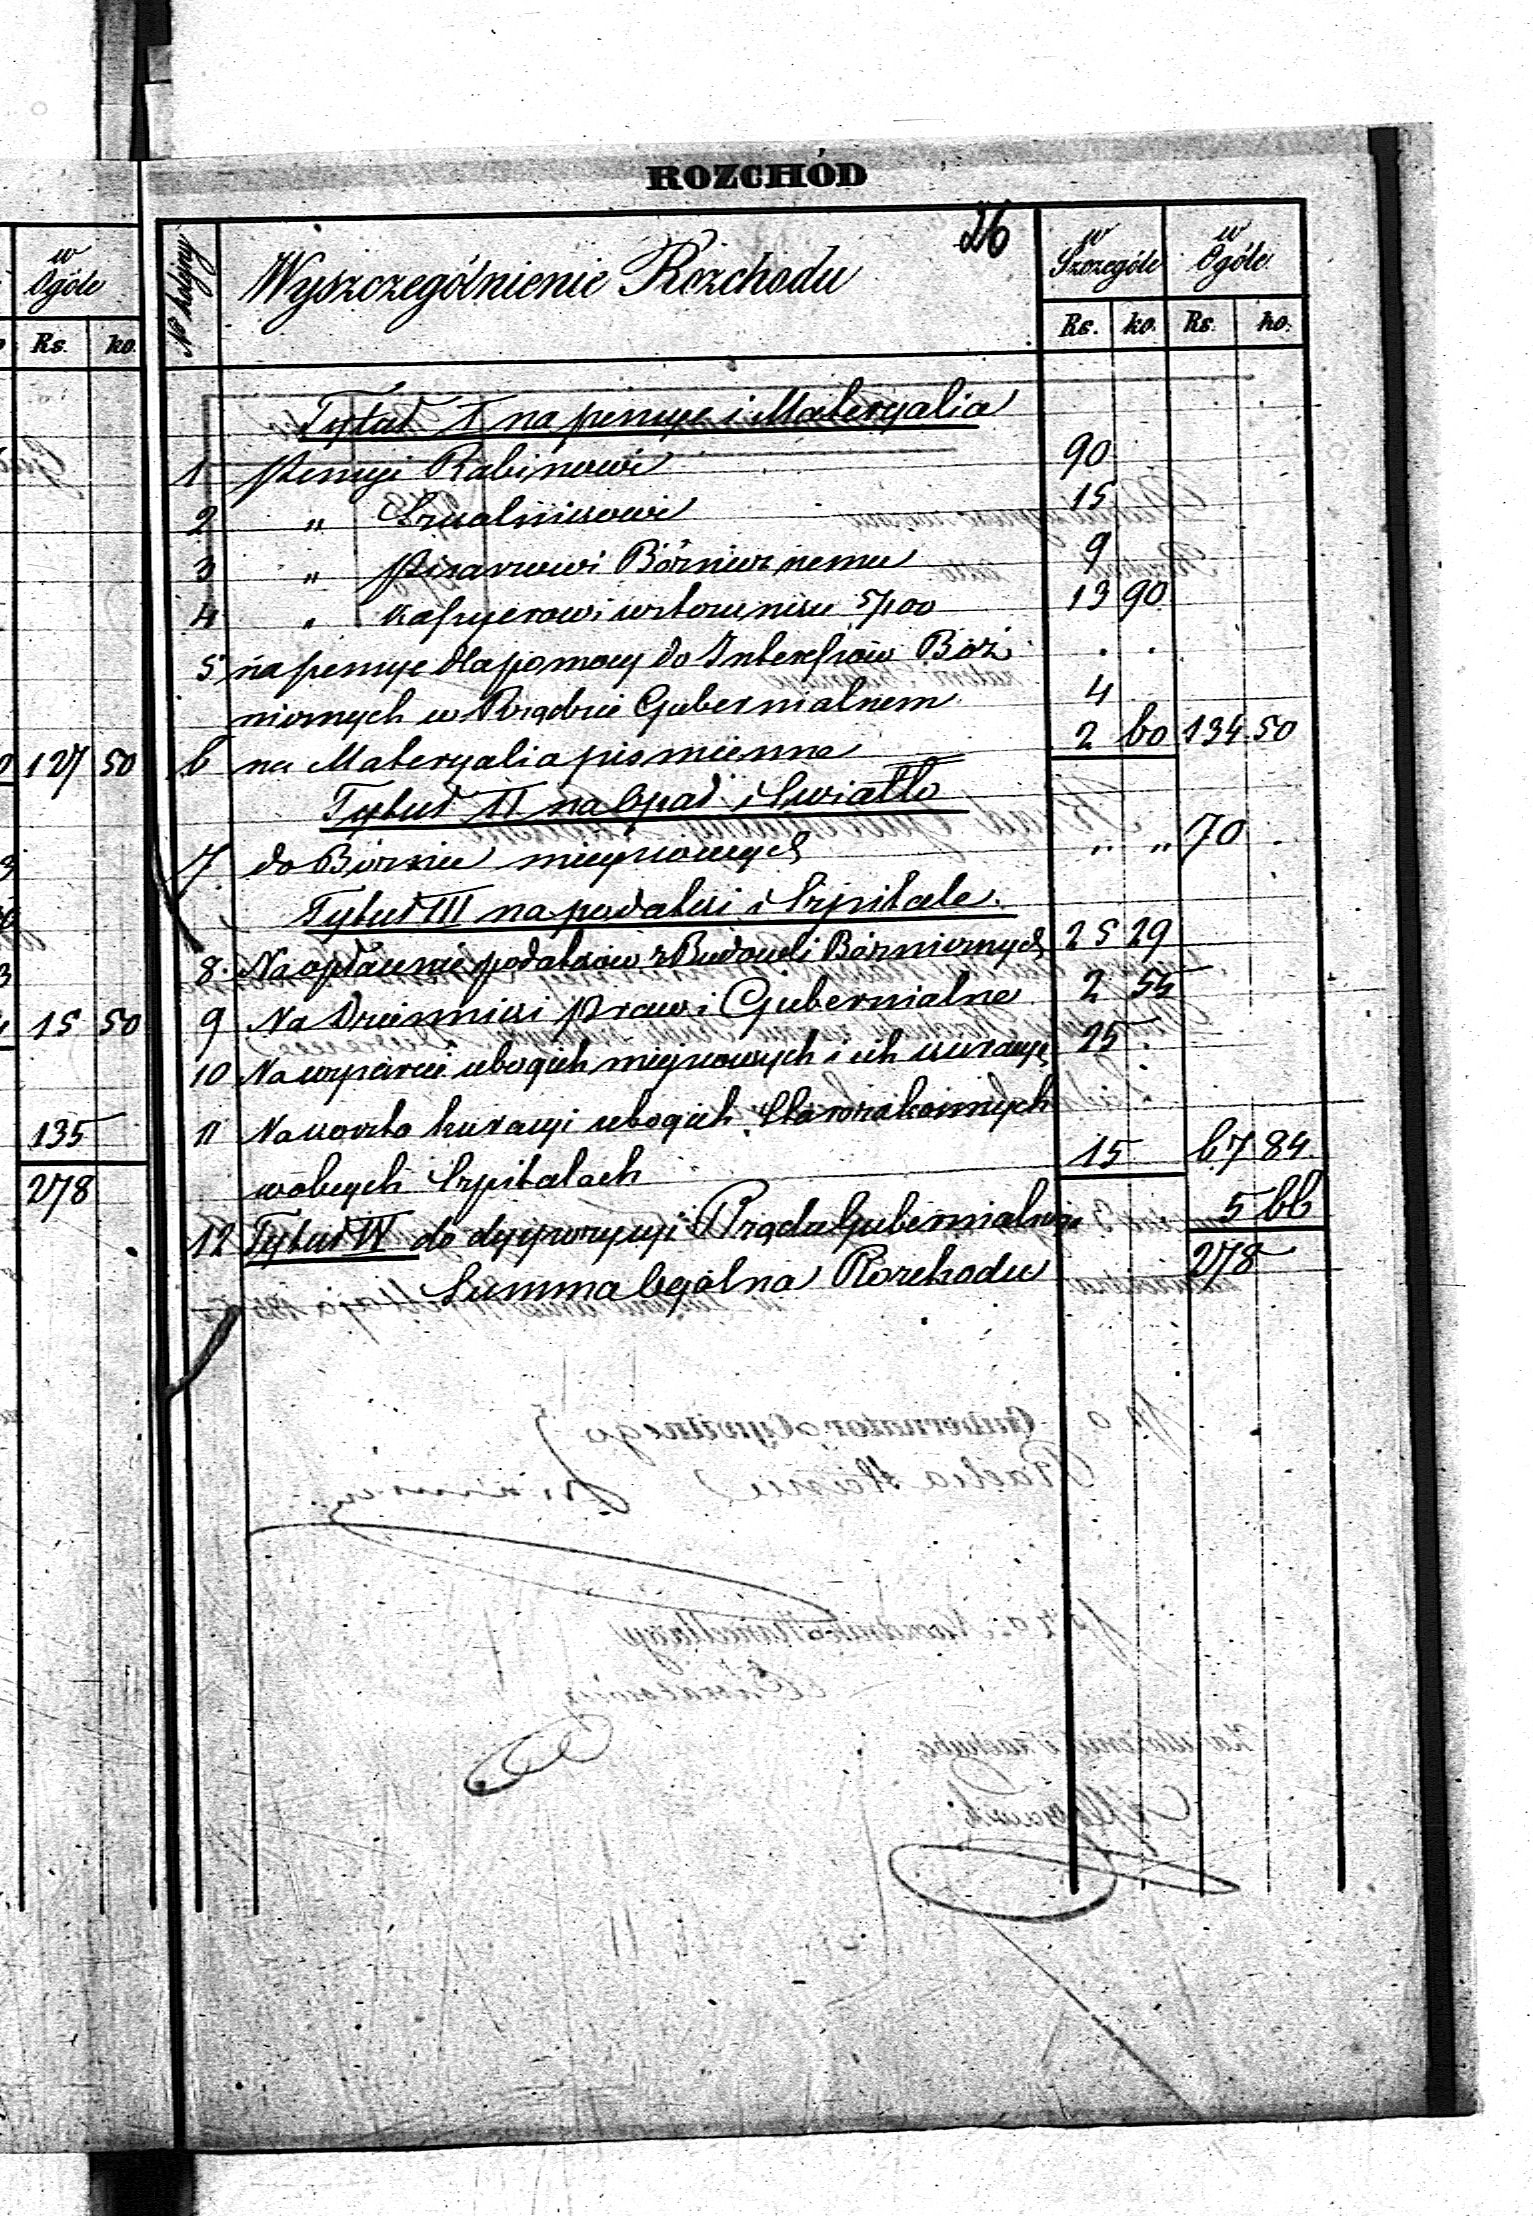 ROZCHÓD
26
No kolejny
Wyszczególnienie Rozchodu
w Szczególe
w Ogóle
Rs. ko. Rs. ko.
Tytuł I na pensye i Materyalia
1 Pensyi Rabinowi 90
2 " Szkolnikowi 15
3 " Pisarzowi Bóżnicznemu 9
4 " Kassyerowi w stosunku 5/100 13 90
5 na pensye dla pomocy do Interessów Boż . .
nicznych w Rządzie Gubernialnem 4
6 na Materyalia piśmienne 2 60 134 50
Tytuł II na Opał i Swiatło
7. do Bóżnic miejscowych " " 70 .
Tytuł III na podatki i Szpitale.
8. Na opłacenie podatków z Budowli Bóżnicznych 25 29
9 Na Dzienniki Praw i Gubernialne 2 55
10 Na wsparcie ubogich miejscowych i ich kuracyę 25 .
11 Na koszta kuracyi ubogich Starozakonnych
w obcych Szpitalach 15 67 84
12 Tytuł IV do dyspozycyi Rządu Gubernialnego 5 66
Summa Ogólna Rozchodu 278
w
Ogóle
Rs. ko.
127 50
15 50
135
278